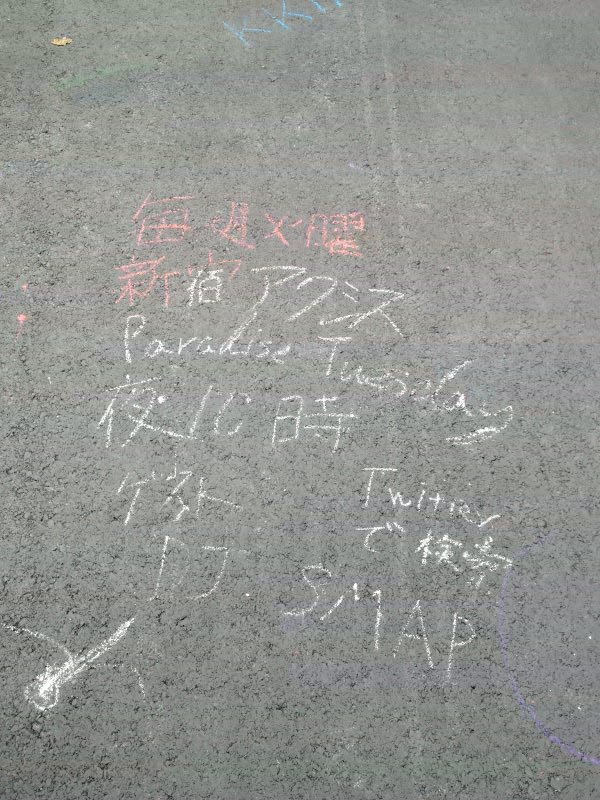 KKI
毎週火曜
新宿アクシス
Paradise Tuesday
夜10時
ゲスト
DJ. SMAP
Twitter
で検索